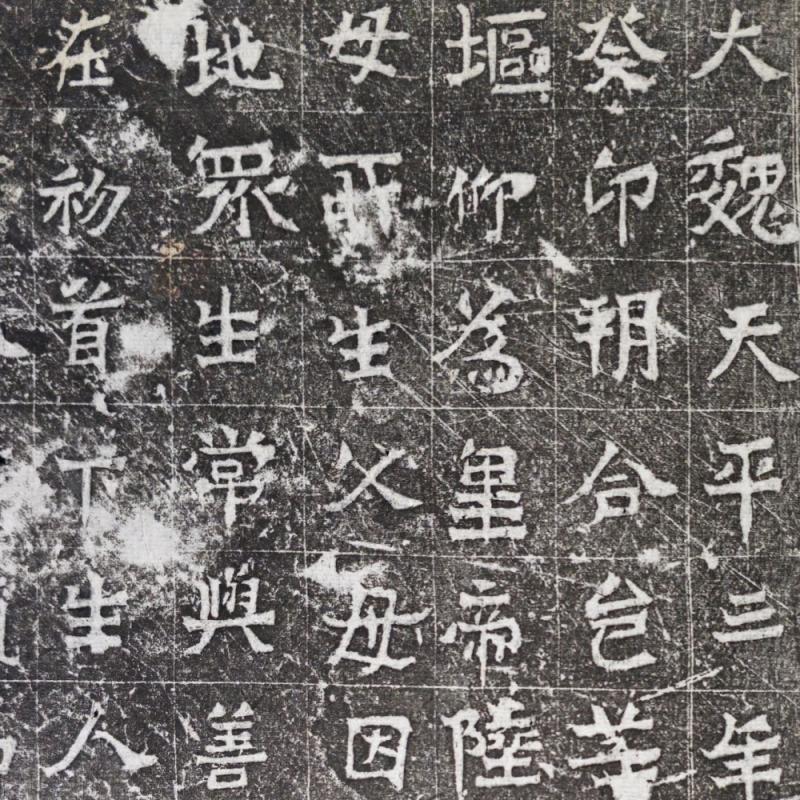 大魏天平三年
癸卯朔合邑等
塸仰為皇帝陛
母所生父母因
地眾生常與善
在初首下生人